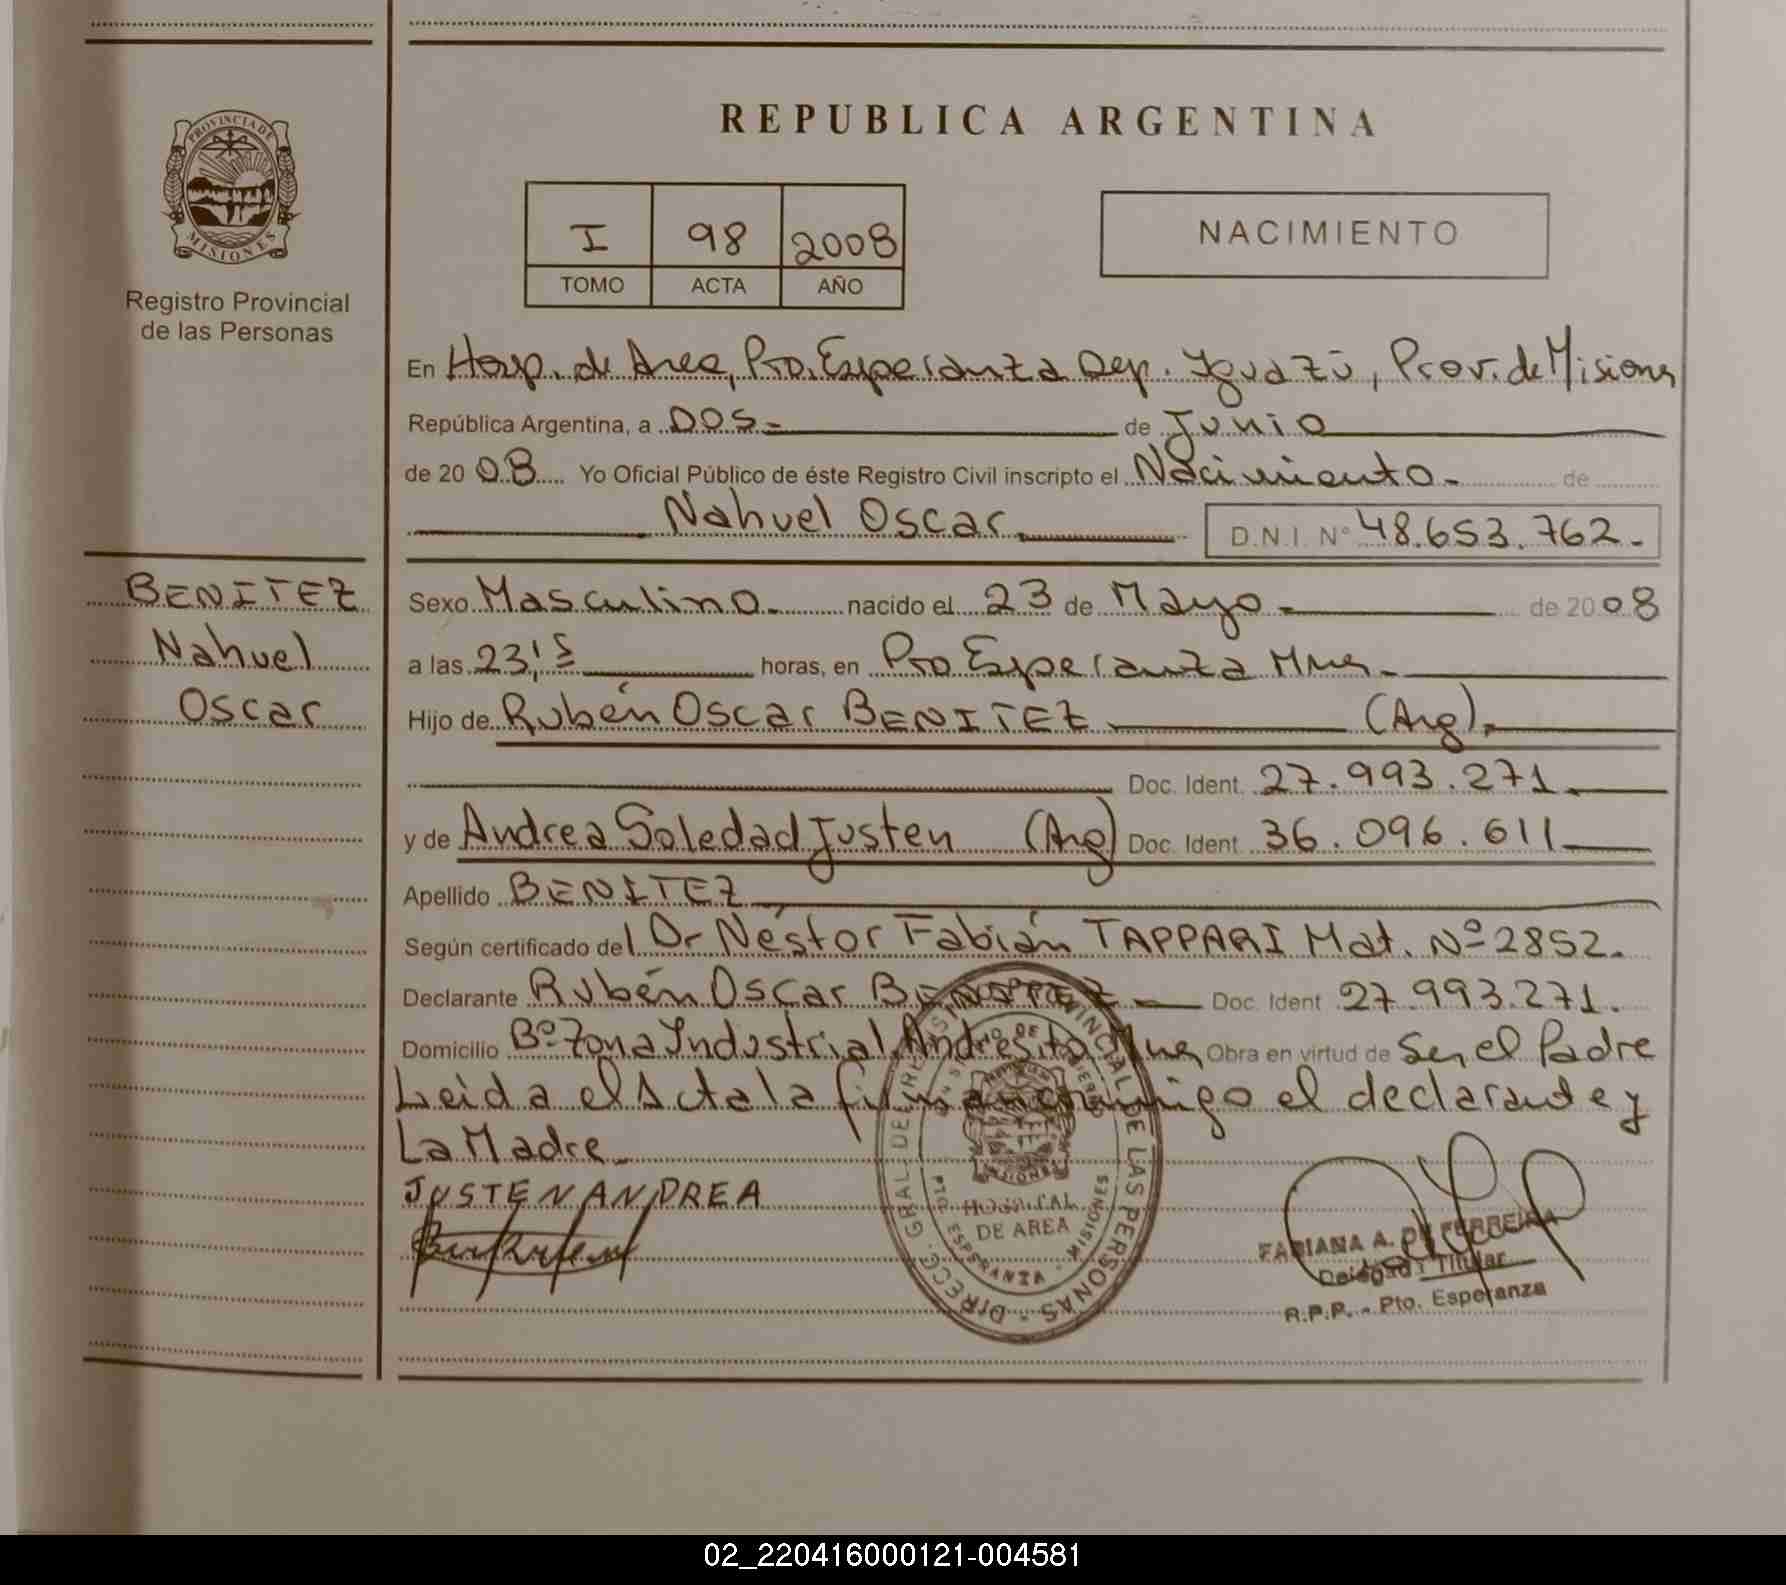 REPUBLICA ARGENTINA
PROVINCIA DE
MISIONES
Registro Provincial
de las Personas
I 98 2008
TOMO ACTA AÑO
NACIMIENTO
En Hosp. de Area, Pto. Esperanza Dep. Iguazú, Prov. de Misiones
República Argentina, a DOS.- de Junio
de 20 08 Yo Oficial Público de éste Registro Civil inscripto el Nacimiento.- de
Nahuel Oscar D.N.I. Nº 48.653.762.-
BENITEZ
Nahuel
Oscar
Sexo Masculino.- nacido el 23 de Mayo.- de 20 08
a las 23,15 horas, en Pto Esperanza Mnes.-
Hijo de Rubén Oscar BENITEZ (Arg).-
Doc. Ident. 27.993.271.
y de Andrea Soledad Justen (Arg) Doc. Ident. 36.096.611
Apellido BENITEZ
Según certificado del Dr Néstor Fabián TAPPARI Mat. Nº 2852.
Declarante Rubén Oscar BENITEZ.- Doc. Ident 27.993.271.
Domicilio Bº Zona Industrial, Andresito Mnes Obra en virtud de Ser el Padre
Leida el Acta la firman conmigo el declarante y
La Madre.-
JUSTEN ANDREA
DIRECC. GRAL. DEL REGISTRO PROVINCIAL DE LAS PERSONAS
HOSPITAL
DE AREA
PTO. ESPERANZA - MISIONES
FABIANA A. DE FERREIRA
Delegada Titular
R.P.P. - Pto. Esperanza
02_220416000121-004581